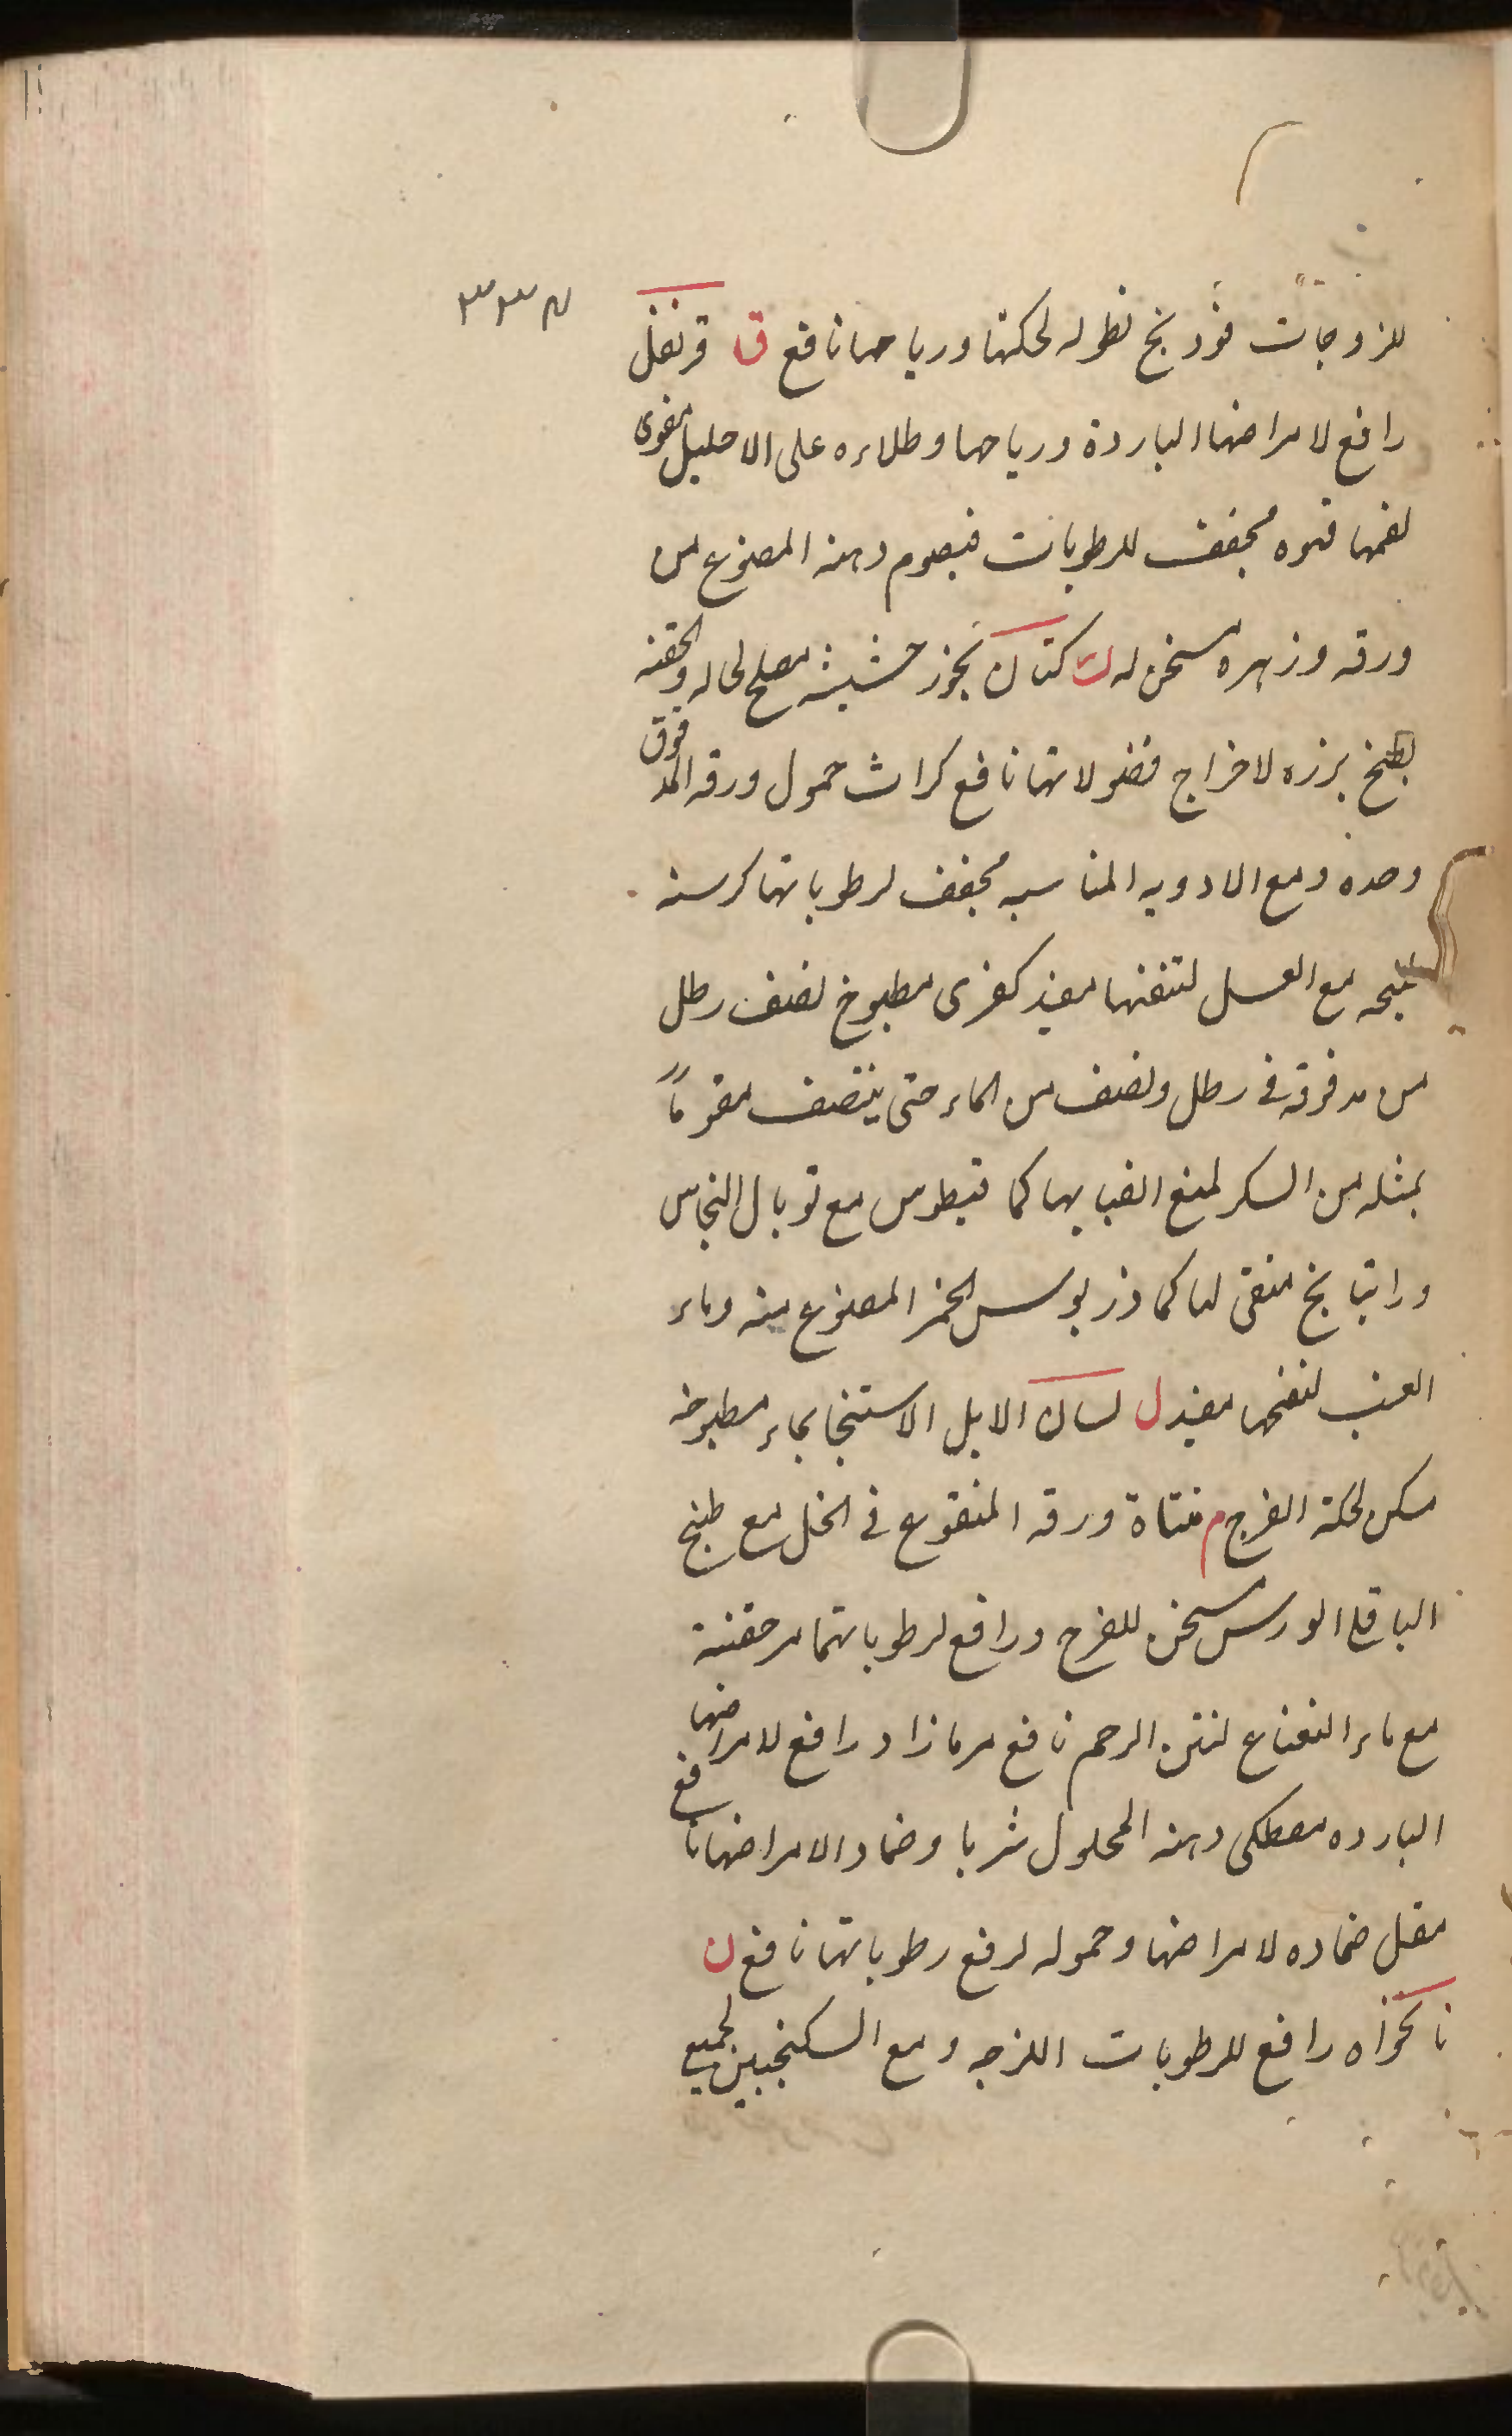 ٣٣٧
للزوجات فوذنج نطوله لحكتها ورياحها نافع ق قرنفل
رافع لامراضها الباردة ورياحها وطلاءه على الاحليل مقوى
لفمها قنوه مجفف للرطوبات قيصوم دهنه المصنوع من
ورقه وزهره مسخن له ك كتان بخوز حشيشه مصلح لحاله والحقنه
بطبخ بزره لاخراج فضولاتها نافع كراث حمول ورقه المدقوق
وحده ومع الادويه المناسبه مجفف لرطوباتها كرسنه
مع العسل لتنقنها مفيد كفرى مطبوخ نصف رطل
من مدقوقه فى رطل ونصف من الماء حتى ينتصف مقوماً
بمثله من السكر لمنع انصبابها كمافيطوس مع توبال النحاس
وراتيانج منقى لها كماذريوس الخمر المصنوع منه وماء
العنب لنفخها مفيد ل لسان الابل الاستنجا بماء مطبوخه
مسكن لحكة الفرج م ورقه المنقوع فى الخل مع طبخ
الباقى الورس مسخن للفرج ورافع لرطوباتها مر حقنة
مع ماء النعناع لنتن الرحم نافع مرمازاد رافع لامراضها
البارده مصطكى دهنه المحلول شربا وضمادا لامراضها نافع
مقل ضماده لامراضها وحموله لرفع رطوباتها نافع ن
نانخواه رافع للرطوبات اللزجه ومع السكنجبين لجميع